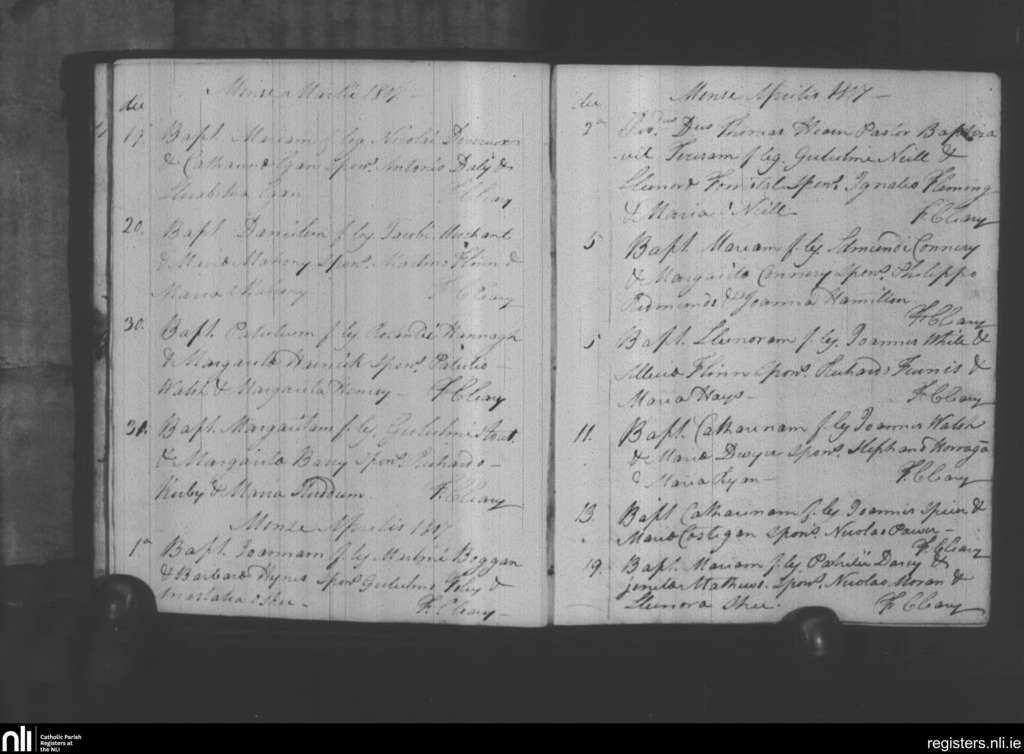 Mense Martii 1817 —
die
19 Bapt. Mariam f. leg. Nicolai Devereux
& Catharina Egan Spon. Antonio Daly &
Elizabetha Egan F. Cleary
20. Bapt. Danielem f. leg. Jacobi Merchant
& Maria Mahony Spon. Martino Flinn &
Maria F. Cleary
30. Bapt. Patritium f. leg.
& Margarita Spon. Patritio
Walsh & Margarita Henery — F. Cleary
31. Bapt. Margaritam f. leg. Gulielmi
& Margarita Barry Spon. Richardo —
Kirby & Maria F. Cleary
Mense Aprilis 1817
1a Bapt. Joannam f. leg. Boggan
& Barbara Hynes Spon. Gulielmo Foley &
Shee. — F. Cleary —
Mense Aprilis 1817 —
die
2a Dus Thomas Pastor Baptiza
vit f. leg. Gulielmi Neill &
Spon. Ignatio Fleming
& Maria O'Neill F. Cleary
5 Bapt. Mariam f. leg. Edmundi Connery
& Margarita Connery Spon. Philippo
Redmonds & Joanna Hamilton
F. Cleary
5 Bapt. Elenoram f. leg. Joannis White &
Flinn Spon. Richardo &
Maria Hays — F. Cleary
11. Bapt. Catharinam f. leg. Joannis Walsh
& Maria Dwyer Spon. Stephano
& Maria Ryan — F. Cleary
13. Bapt. Catharinam f. leg. Joannis &
Maria Costigan Spon. Nicolao Power —
F. Cleary
19. Bapt. Mariam f. leg. Patritii Darcy &
Mathews. Spon. Nicolao Moran &
Elenora Shee. F. Cleary
nli
Catholic Parish
Registers at
the NLI
registers.nli.ie